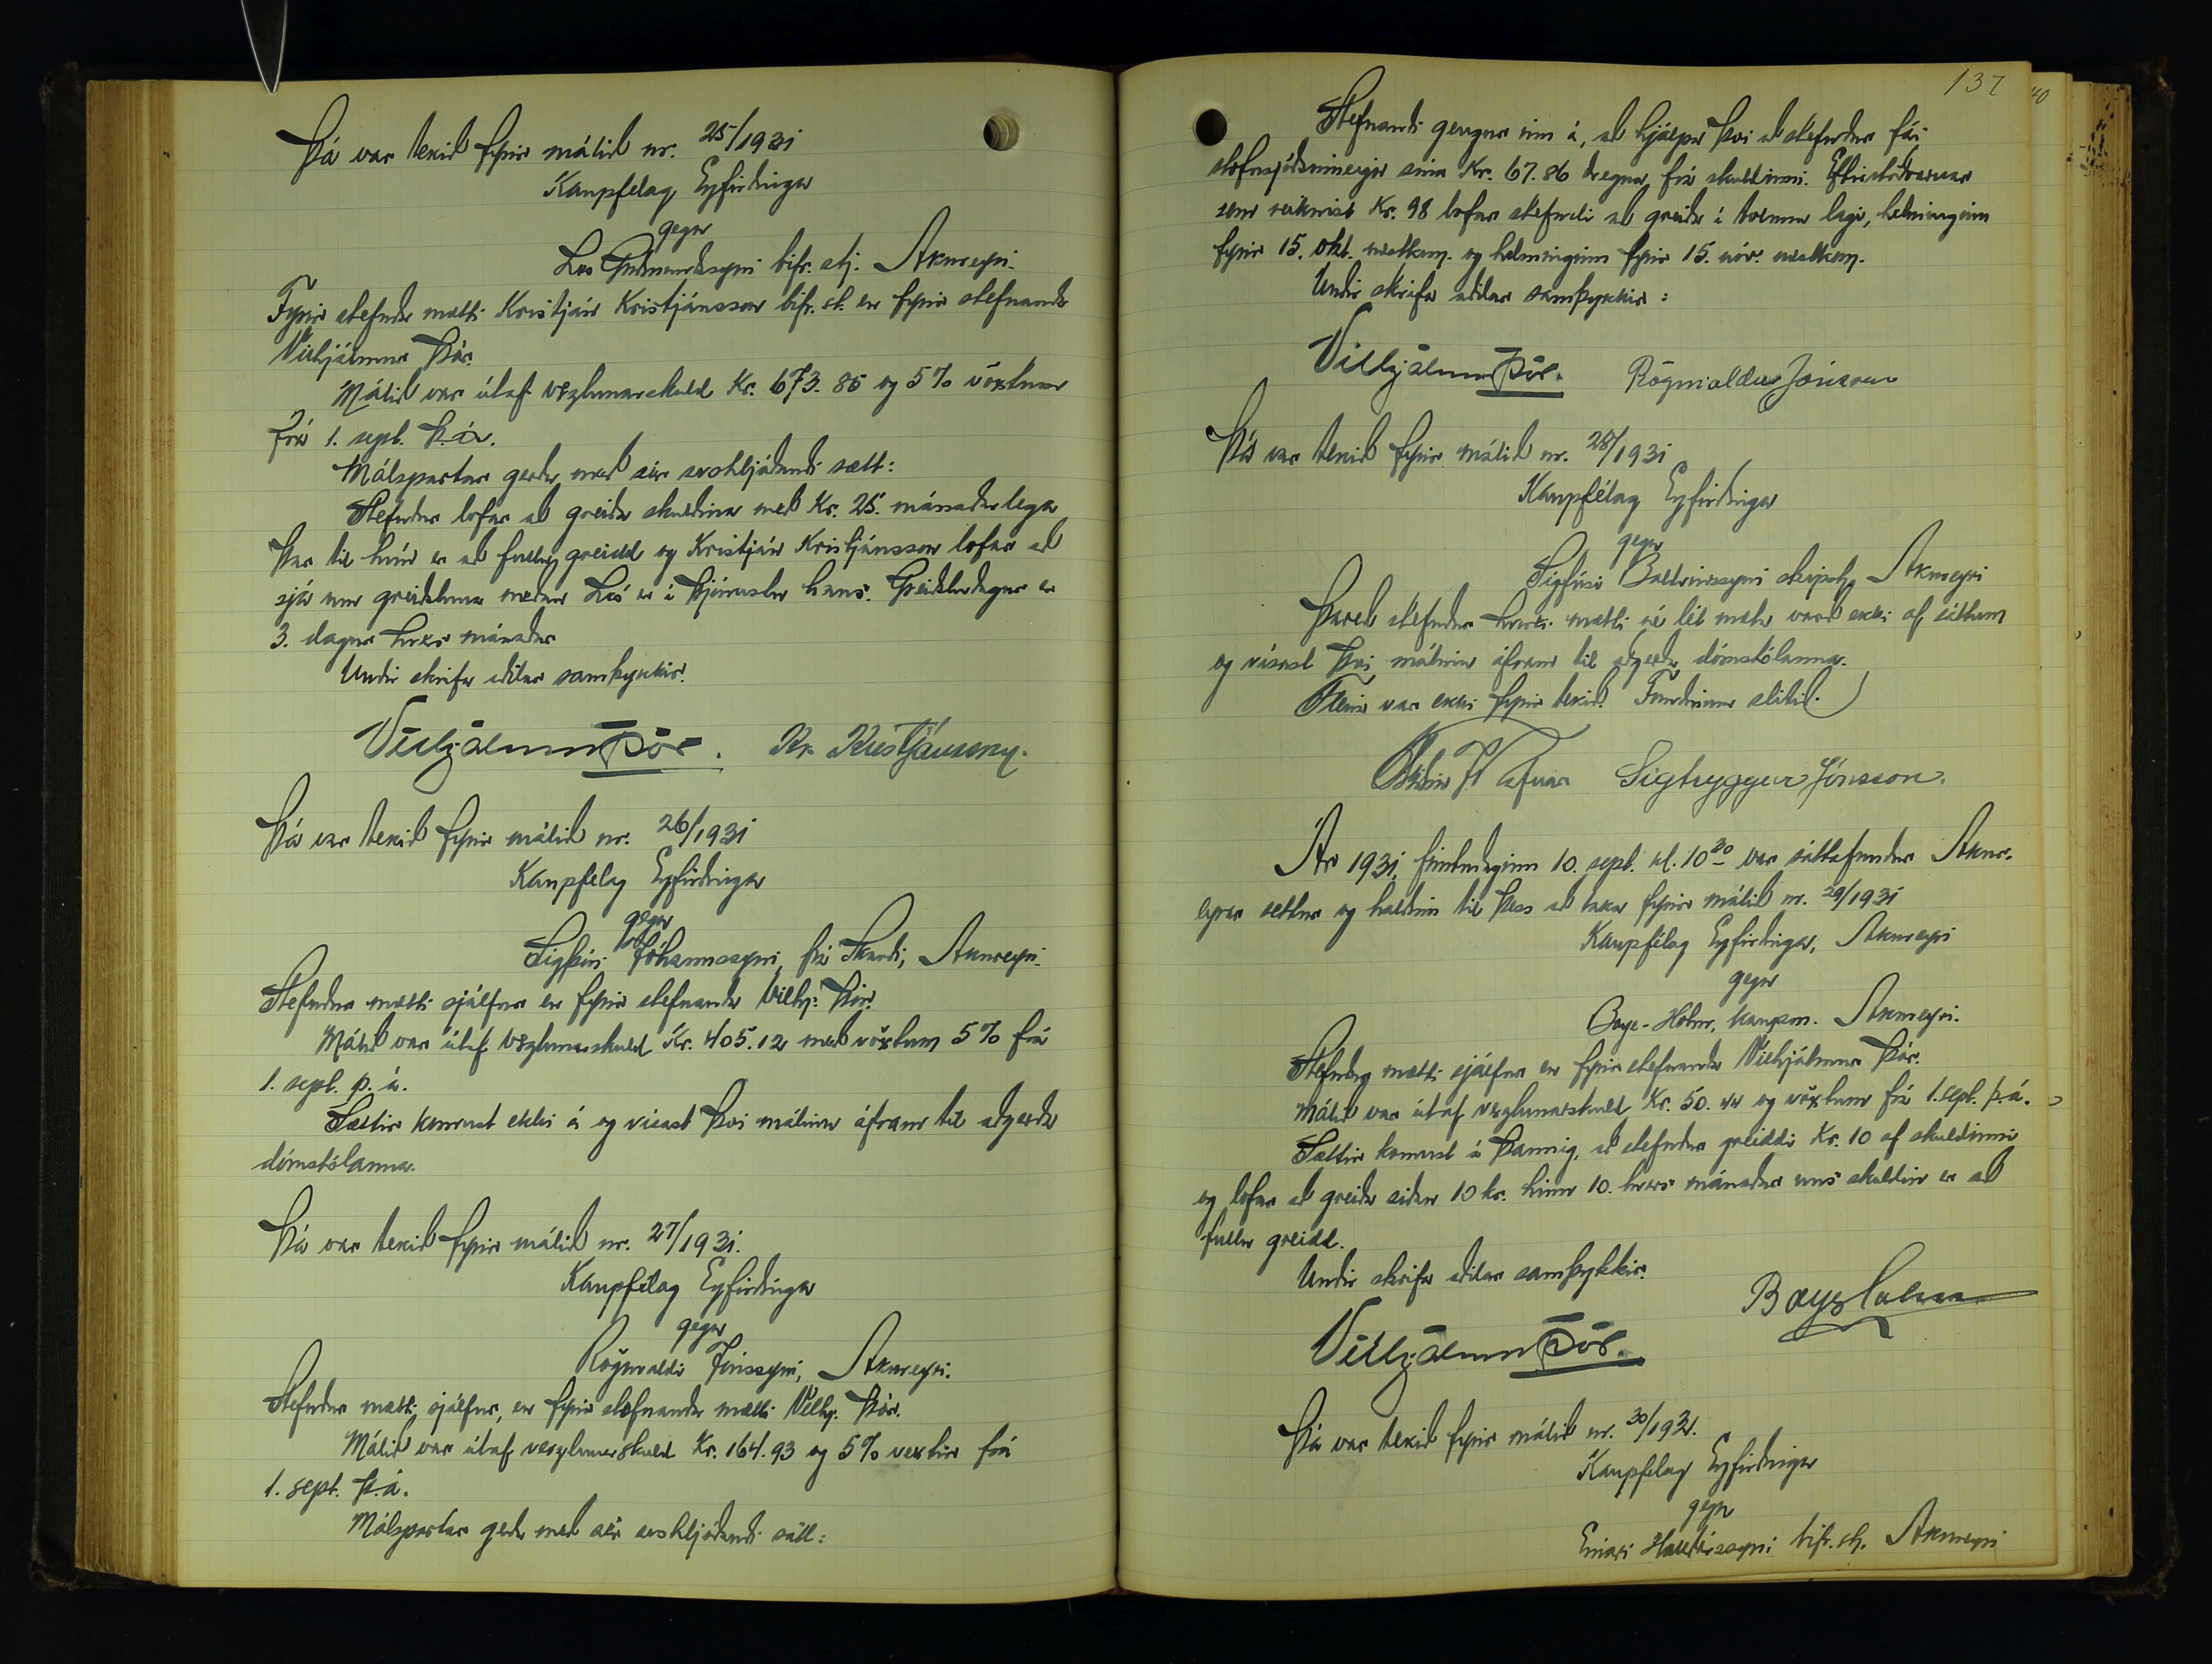 Þá var tekið fyrir málið nr. 25/1931
Kaupfelag Eyfirðinga
gegn
Leó Guðmundssyni bifr. stj. Akureyri.
Fyrir stefnda mætti Kristján Kristjánsson bifr. st. en fyrir stefnanda
Vilhjálmur Þór.
Málið var útaf verzlunarskuld Kr. 673.85 og 5% vöxtum
frá 1. sept. þ.á.
Málspartar gerðu með sér svohljóðandi sætt:
Stefndur lofar að greiða skuldina með Kr. 25. mánaðarlega
þar til hún er að fullu greidd og Kristján Kristjánsson lofar að
sjá um greiðsluna meðan Leó er í þjónustu hans. Greiðsludagur er
3. dagur hvers mánaðar
Undir skrifa aðilar samþykkir.
Vilhjálmur Þór. Kr. Kristjánsson.
Þá var tekið fyrir málið nr. 26/1931
Kaupfelag Eyfirðinga
gegn
Sigþóri Jóhannssyni, frá Skarði, Akureyri.
Stefndur mætti sjálfur en fyrir stefnanda Vilhj. Þór.
Málið var útaf verzlunarskuld Kr. 405.12 með vöxtum 5% frá
1. sept. þ. á.
Sættir komust ekki á og vísast því málinu áfram til aðgerða
dómstólanna.
Þá var tekið fyrir málið nr. 27/1931.
Kaupfélag Eyfirðinga
gegn
Rögnvaldi Jónssyni, Akureyri.
Stefndur mætti sjálfur, en fyrir stefnanda mætti Vilhj. Þór.
Málið var útaf verzlunarskuld Kr. 164.93 og 5% vextir frá
1. sept. þ.á.
Málspartar gerðu með sér svohljóðandi sátt:
137
Stefnandi gengur inn á, að hjálpa því að stefndur fái
stofnsjóðsinneign sína Kr. 67.86 dregna frá skuldinni. Eftirstöðvarnar
sem reiknast Kr. 98 lofar stefndi að greiða í tvennu lagi, helminginn
fyrir 15. okt. næstkom. og helminginn fyrir 15. nóv. næstkom.
Undir skrifa aðilar samþykkir:
Vilhjálmur Þór. Rögnvaldur Jónsson
Þá var tekið fyrir málið nr. 28/1931
Kaupfélag Eyfirðinga
gegn
Sigfúsi Baldvinssyni skipstj. Akureyri
Þareð stefndur hvorki mætti né lét mæta varð ekki af sáttum
og vísast því málinu áfram til aðgerða dómstólanna.
Fleira var ekki fyrir tekið. Fundinum slitið.
Sigtryggur Jónsson.
Ár 1931, fimtudaginn 10. sept. kl. 10 30 var sáttafundur Akur-
eyrar settur og haldinn til þess að taka fyrir málið nr. 29/1931
Kaupfélag Eyfirðinga, Akureyri
gegn
Baye-Holm, kaupm. Akureyri.
Stefndur mætti sjálfur en fyrir stefnanda Vilhjálmur Þór.
Málið var útaf verzlunarskuld Kr. 50. og vöxtum frá 1. sept. þ.á.
Sættir komust á þannig, að stefndur greiddi Kr. 10 af skuldinni
og lofar að greiða síðan 10 kr. hinn 10. hvers mánaðar uns skuldin er að
fullu greidd.
Undir skrifa aðilar samþykkir.
Baye Holm
Vilhjálmur Þór.
Þá var tekið fyrir málið nr. 30/1931.
Kaupfelag Eyfirðinga
gegn
Einari bifr.stj. Akureyri